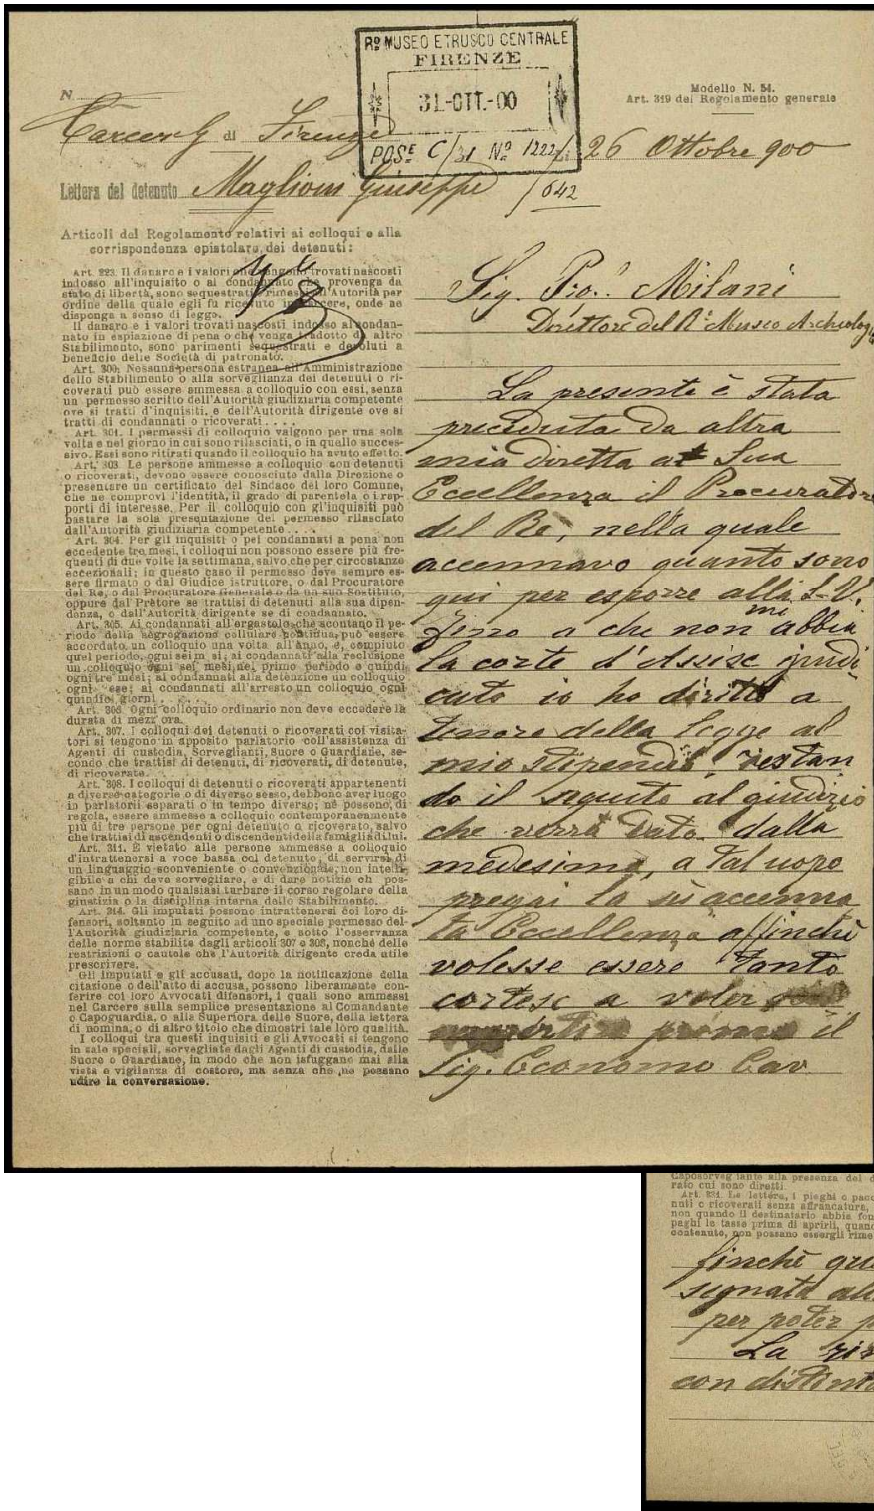 Rº MUSEO ETRUSCO CENTRALE
FIRENZE
31-OTT.-00
POSE C/31 Nº 1222
N.
Modello N. 54.
Art. 319 del Regolamento generale
di Firenze
26 Ottobre 900
Lettera del detenuto Maglioni Giuseppe
/642
Articoli del Regolamento relativi ai colloqui e alla
corrispondenza epistolare dei detenuti:
Art. 223. Il danaro e i valori che vengono trovati nascosti
indosso all'inquisito o al condannato che provenga da
stato di libertà, sono sequestrati e rimessi all'Autorità per
ordine della quale egli fu ricevuto in carcere, onde ne
disponga a senso di legge.
Il danaro e i valori trovati nascosti indosso al condan-
nato in espiazione di pena o che venga tradotto da altro
Stabilimento, sono parimenti sequestrati e devoluti a
beneficio delle Società di patronato.
Art. 300. Nessuna persona estranea all'Amministrazione
dello Stabilimento o alla sorveglianza dei detenuti o ri-
coverati può essere ammessa a colloquio con essi, senza
un permesso scritto dell'Autorità giudiziaria competente
ove si tratti d'inquisiti, e dell'Autorità dirigente ove si
tratti di condannati o ricoverati . . . .
Art. 301. I permessi di colloquio valgono per una sola
volta e nel giorno in cui sono rilasciati, o in quello succes-
sivo. Essi sono ritirati quando il colloquio ha avuto effetto.
Art. 303 Le persone ammesse a colloquio con detenuti
o ricoverati, devono essere conosciute dalla Direzione o
presentare un certificato del Sindaco del loro Comune,
che ne comprovi l'identità, il grado di parentela o i rap-
porti di interesse. Per il colloquio con gl'inquisiti può
bastare la sola presentazione del permesso rilasciato
dall'Autorità giudiziaria competente . . . .
Art. 304. Per gli inquisiti o pei condannati a pena non
eccedente tre mesi, i colloqui non possono essere più fre-
quenti di due volte la settimana, salvo che per circostanze
eccezionali; in questo caso il permesso deve sempre es-
sere firmato o dal Giudice istruttore, o dal Procuratore
del Re, o dal Procuratore Generale o da un suo Sostituto,
oppure dal Pretore se trattisi di detenuti alla sua dipen-
denza, o dall'Autorità dirigente se di condannato.
Art. 305. Ai condannati all'ergastolo che scontano il pe-
riodo della segregazione cellulare continua, può essere
accordato un colloquio una volta all'anno, e, compiuto
quel periodo, ogni sei mesi; ai condannati alla reclusione
un colloquio ogni sei mesi nel primo periodo e quindi
ogni tre mesi; ai condannati alla detenzione un colloquio
ogni mese; ai condannati all'arresto un colloquio ogni
quindici giorni . . . .
Art. 306. Ogni colloquio ordinario non deve eccedere la
durata di mezz'ora.
Art. 307. I colloqui dei detenuti o ricoverati coi visita-
tori si tengono in apposito parlatorio coll'assistenza di
Agenti di custodia, Sorveglianti, Suore o Guardiane, se-
condo che trattisi di detenuti, di ricoverati, di detenute,
di ricoverate.
Art. 308. I colloqui di detenuti o ricoverati appartenenti
a diverse categorie o di diverso sesso, debbono aver luogo
in parlatorii separati o in tempo diverso; nè possono, di
regola, essere ammesse a colloquio contemporaneamente
più di tre persone per ogni detenuto o ricoverato, salvo
che trattisi di ascendenti o discendenti della famiglia di lui.
Art. 311. È vietato alle persone ammesse a colloquio
d'intrattenersi a voce bassa col detenuto, di servirsi di
un linguaggio sconveniente o convenzionale, non intelli-
gibile a chi deve sorvegliare, e di dare notizie che pos-
sano in un modo qualsiasi turbare il corso regolare della
giustizia o la disciplina interna dello Stabilimento.
Art. 314. Gli imputati possono intrattenersi coi loro di-
fensori, soltanto in seguito ad uno speciale permesso del-
l'Autorità giudiziaria competente, e sotto l'osservanza
delle norme stabilite dagli articoli 307 e 308, nonchè delle
restrizioni o cautele che l'Autorità dirigente creda utile
prescrivere.
Gli imputati e gli accusati, dopo la notificazione della
citazione o dell'atto di accusa, possono liberamente con-
ferire coi loro Avvocati difensori, i quali sono ammessi
nel Carcere sulla semplice presentazione al Comandante
o Capoguardia, o alla Superiora delle Suore, della lettera
di nomina, o di altro titolo che dimostri tale loro qualità.
I colloqui tra questi inquisiti e gli Avvocati si tengono
in sale speciali, sorvegliate dagli Agenti di custodia, dalle
Suore o Guardiane, in modo che non isfuggano mai alla
vista e vigilanza di costoro, ma senza che ne possano
udire la conversazione.
Sig. Pro. Milani
Direttore del Rº Museo Archeolog
La presente è stata
preceduta da altra
mia diretta a Sua
Eccellenza il Procuratore
del Rè, nella quale
accennavo quanto sono
qui per esporre alla S.V.
Fino a che non mi abbia
la corte d'Assise giudi
cato io ho diritto a
tenore della legge al
mio stipendio, restan
do il seguito al giudizio
che verrà dato dalla
medesima, a tal uopo
pregai la su accenna
ta Eccellenza affinchè
volesse essere tanto
cortese a voler
prima il
Sig. Economo Cav.
Caposorvegliante alla presenza del d
rato cui sono diretti.
Art. 321. Le lettere, i pieghi o pacc
nuti o ricoverati senza affrancatura,
non quando il destinatario abbia fon
paghi le tasse prima di aprirli, quand
contenuto, non possano essergli rime
finchè que
segnata all
per poter p
La
con distint